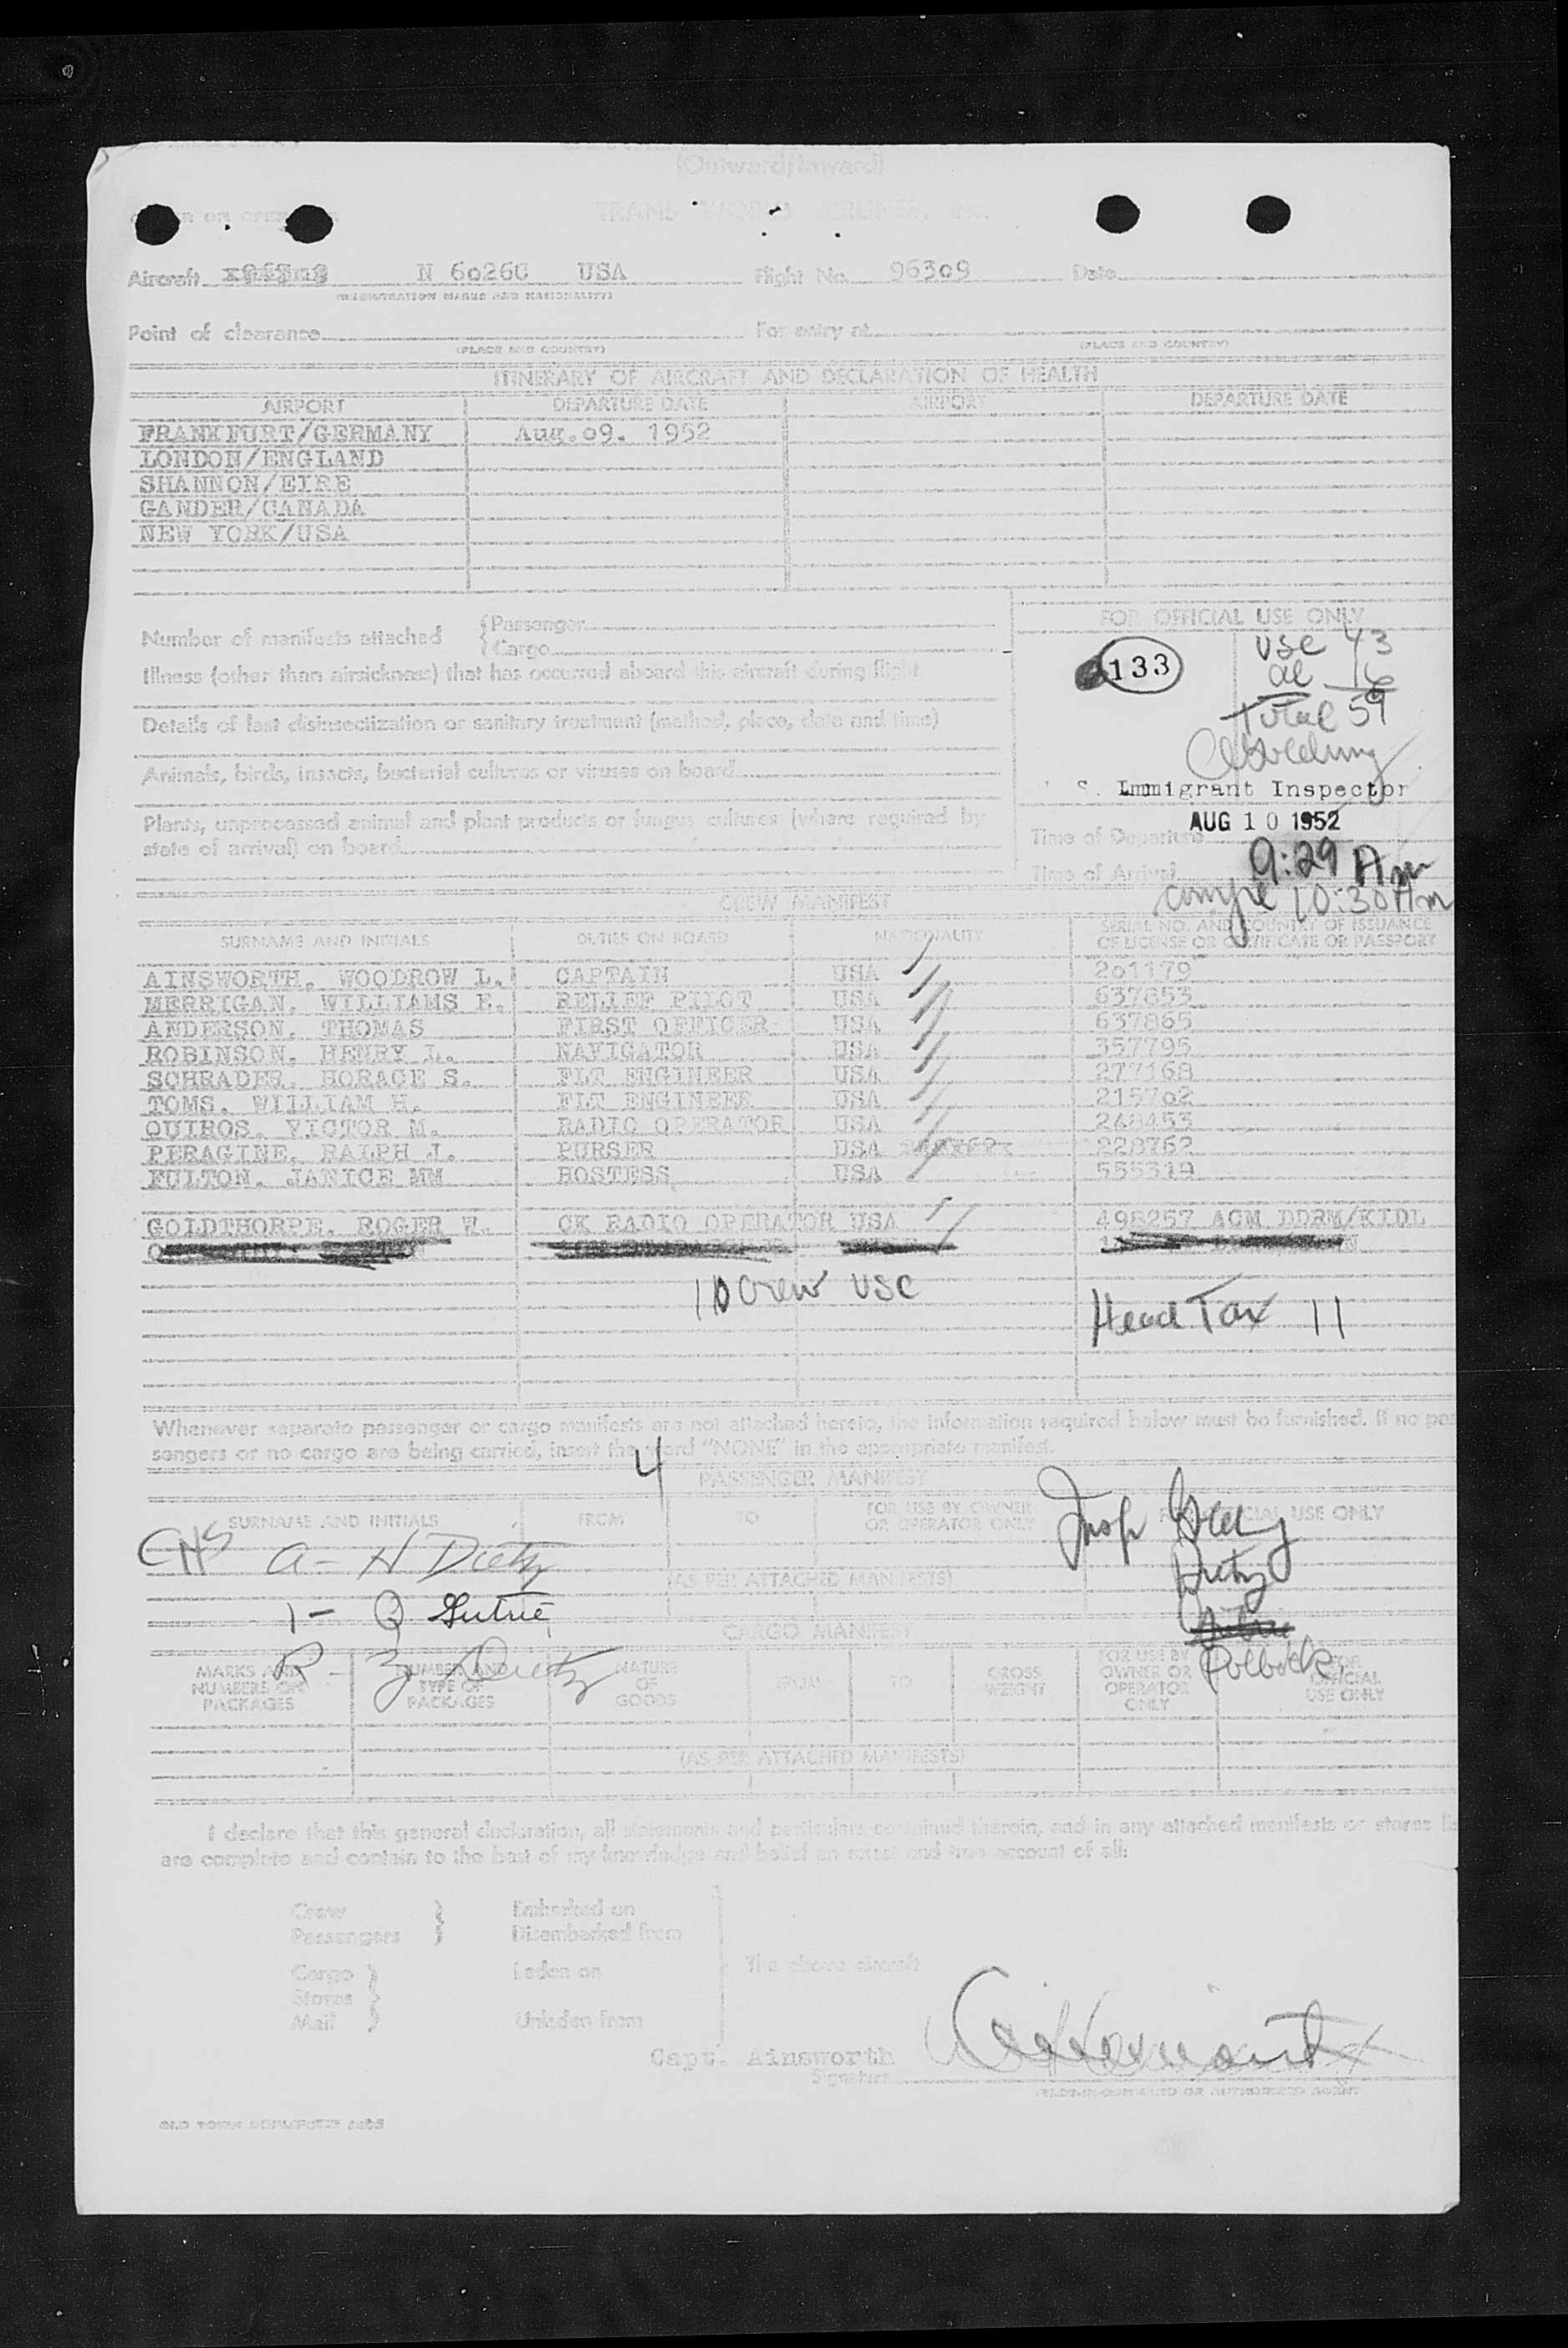 (Outward/Inward)
TRANS WORLD AIRLINES, INC.
Aircraft N 6026C USA Flight No. 96309 Date
(REGISTRATION MARKS AND NATIONALITY)
Point of clearance For entry at
(PLACE AND COUNTRY) (PLACE AND COUNTRY)
ITINERARY OF AIRCRAFT AND DECLARATION OF HEALTH
AIRPORT DEPARTURE DATE AIRPORT DEPARTURE DATE
FRANKFURT/GERMANY Aug.09. 1952
LONDON/ENGLAND
SHANNON/EIRE
GANDER/CANADA
NEW YORK/USA
FOR OFFICIAL USE ONLY
Number of manifests attached { Passenger
{ Cargo
133
USC 43
al 16
Total 59
Illness (other than airsickness) that has occurred aboard this aircraft during flight
Details of last disinsectization or sanitary treatment (method, place, date and time)
Animals, birds, insects, bacterial cultures or viruses on board
S. Immigrant Inspector
Plants, unprocessed animal and plant products or fungus cultures (where required by
state of arrival) on board
AUG 10 1952
Time of Departure
Time of Arrival 9:29 Am
10:30 Am
CREW MANIFEST
SURNAME AND INITIALS DUTIES ON BOARD NATIONALITY SERIAL NO. AND COUNTRY OF ISSUANCE
OF LICENSE OR CERTIFICATE OR PASSPORT
AINSWORTH, WOODROW L. CAPTAIN USA 201179
MERRIGAN, WILLIAMS E. RELIEF PILOT USA 637853
ANDERSON, THOMAS FIRST OFFICER USA 637865
ROBINSON, HENRY L. NAVIGATOR USA 357795
SCHRADER, HORACE S. FLT ENGINEER USA 277168
TOMS, WILLIAM H. FLT ENGINEER USA 215702
QUIROS, VICTOR M. RADIO OPERATOR USA 248453
PERAGINE, RALPH J. PURSER USA 228762
FULTON, JANICE MM HOSTESS USA 555319
GOLDTHORPE, ROGER W. CK RADIO OPERATOR USA 498257 ACM DDRM/KIDL
10 Crew USC
Head Tax 11
Whenever separate passenger or cargo manifests are not attached hereto, the information required below must be furnished. If no pas
sengers or no cargo are being carried, insert the word "NONE" in the appropriate manifest.
4
PASSENGER MANIFEST
SURNAME AND INITIALS FROM TO FOR USE BY OWNER
OR OPERATOR ONLY FOR OFFICIAL USE ONLY
Insp
a - H Dietz
Dietz
(AS PER ATTACHED MANIFESTS)
1 -
CARGO MANIFEST
R - Dietz
Pollock
MARKS AND
NUMBERS ON
PACKAGES NUMBER AND
TYPE OF
PACKAGES NATURE
OF
GOODS FROM TO GROSS
WEIGHT FOR USE BY
OWNER OR
OPERATOR
ONLY FOR
OFFICIAL
USE ONLY
(AS PER ATTACHED MANIFESTS)
I declare that this general declaration, all statements and particulars contained therein, and in any attached manifests or stores lis
are complete and contain to the best of my knowledge and belief an exact and true account of all:
Crew } Embarked on
Passengers } Disembarked from
Cargo } Laden on The above aircraft
Stores }
Mail } Unladen from
Capt. Ainsworth
Signature
PILOT-IN-COMMAND OR AUTHORIZED AGENT